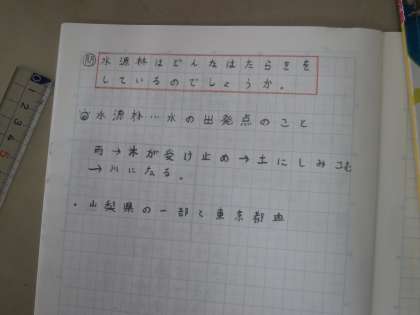 問 水源林はどんなはたらきを
しているのでしょうか。
水源林…水の出発点のこと
雨→木が受け止め→土にしみこむ
→川になる。
・山梨県の一部と東京都